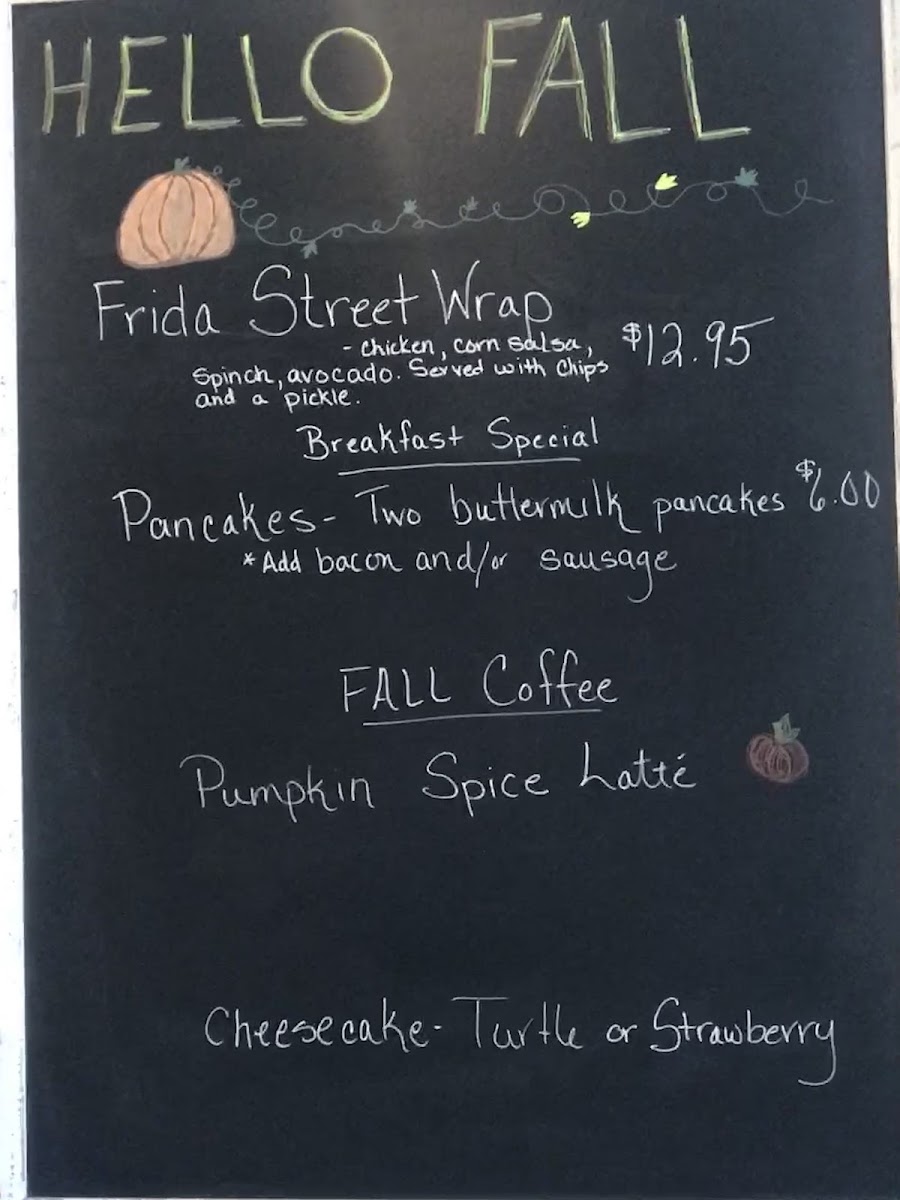 HELLO FALL
Frida Street Wrap
- chicken, corn salsa, $12.95
Spinch, avocado. Served with Chips
and a pickle.
Breakfast Special
Pancakes- Two buttermilk pancakes $6.00
*Add bacon and/or sausage
FALL Coffee
Pumpkin Spice Latté
Cheesecake- Turtle or Strawberry